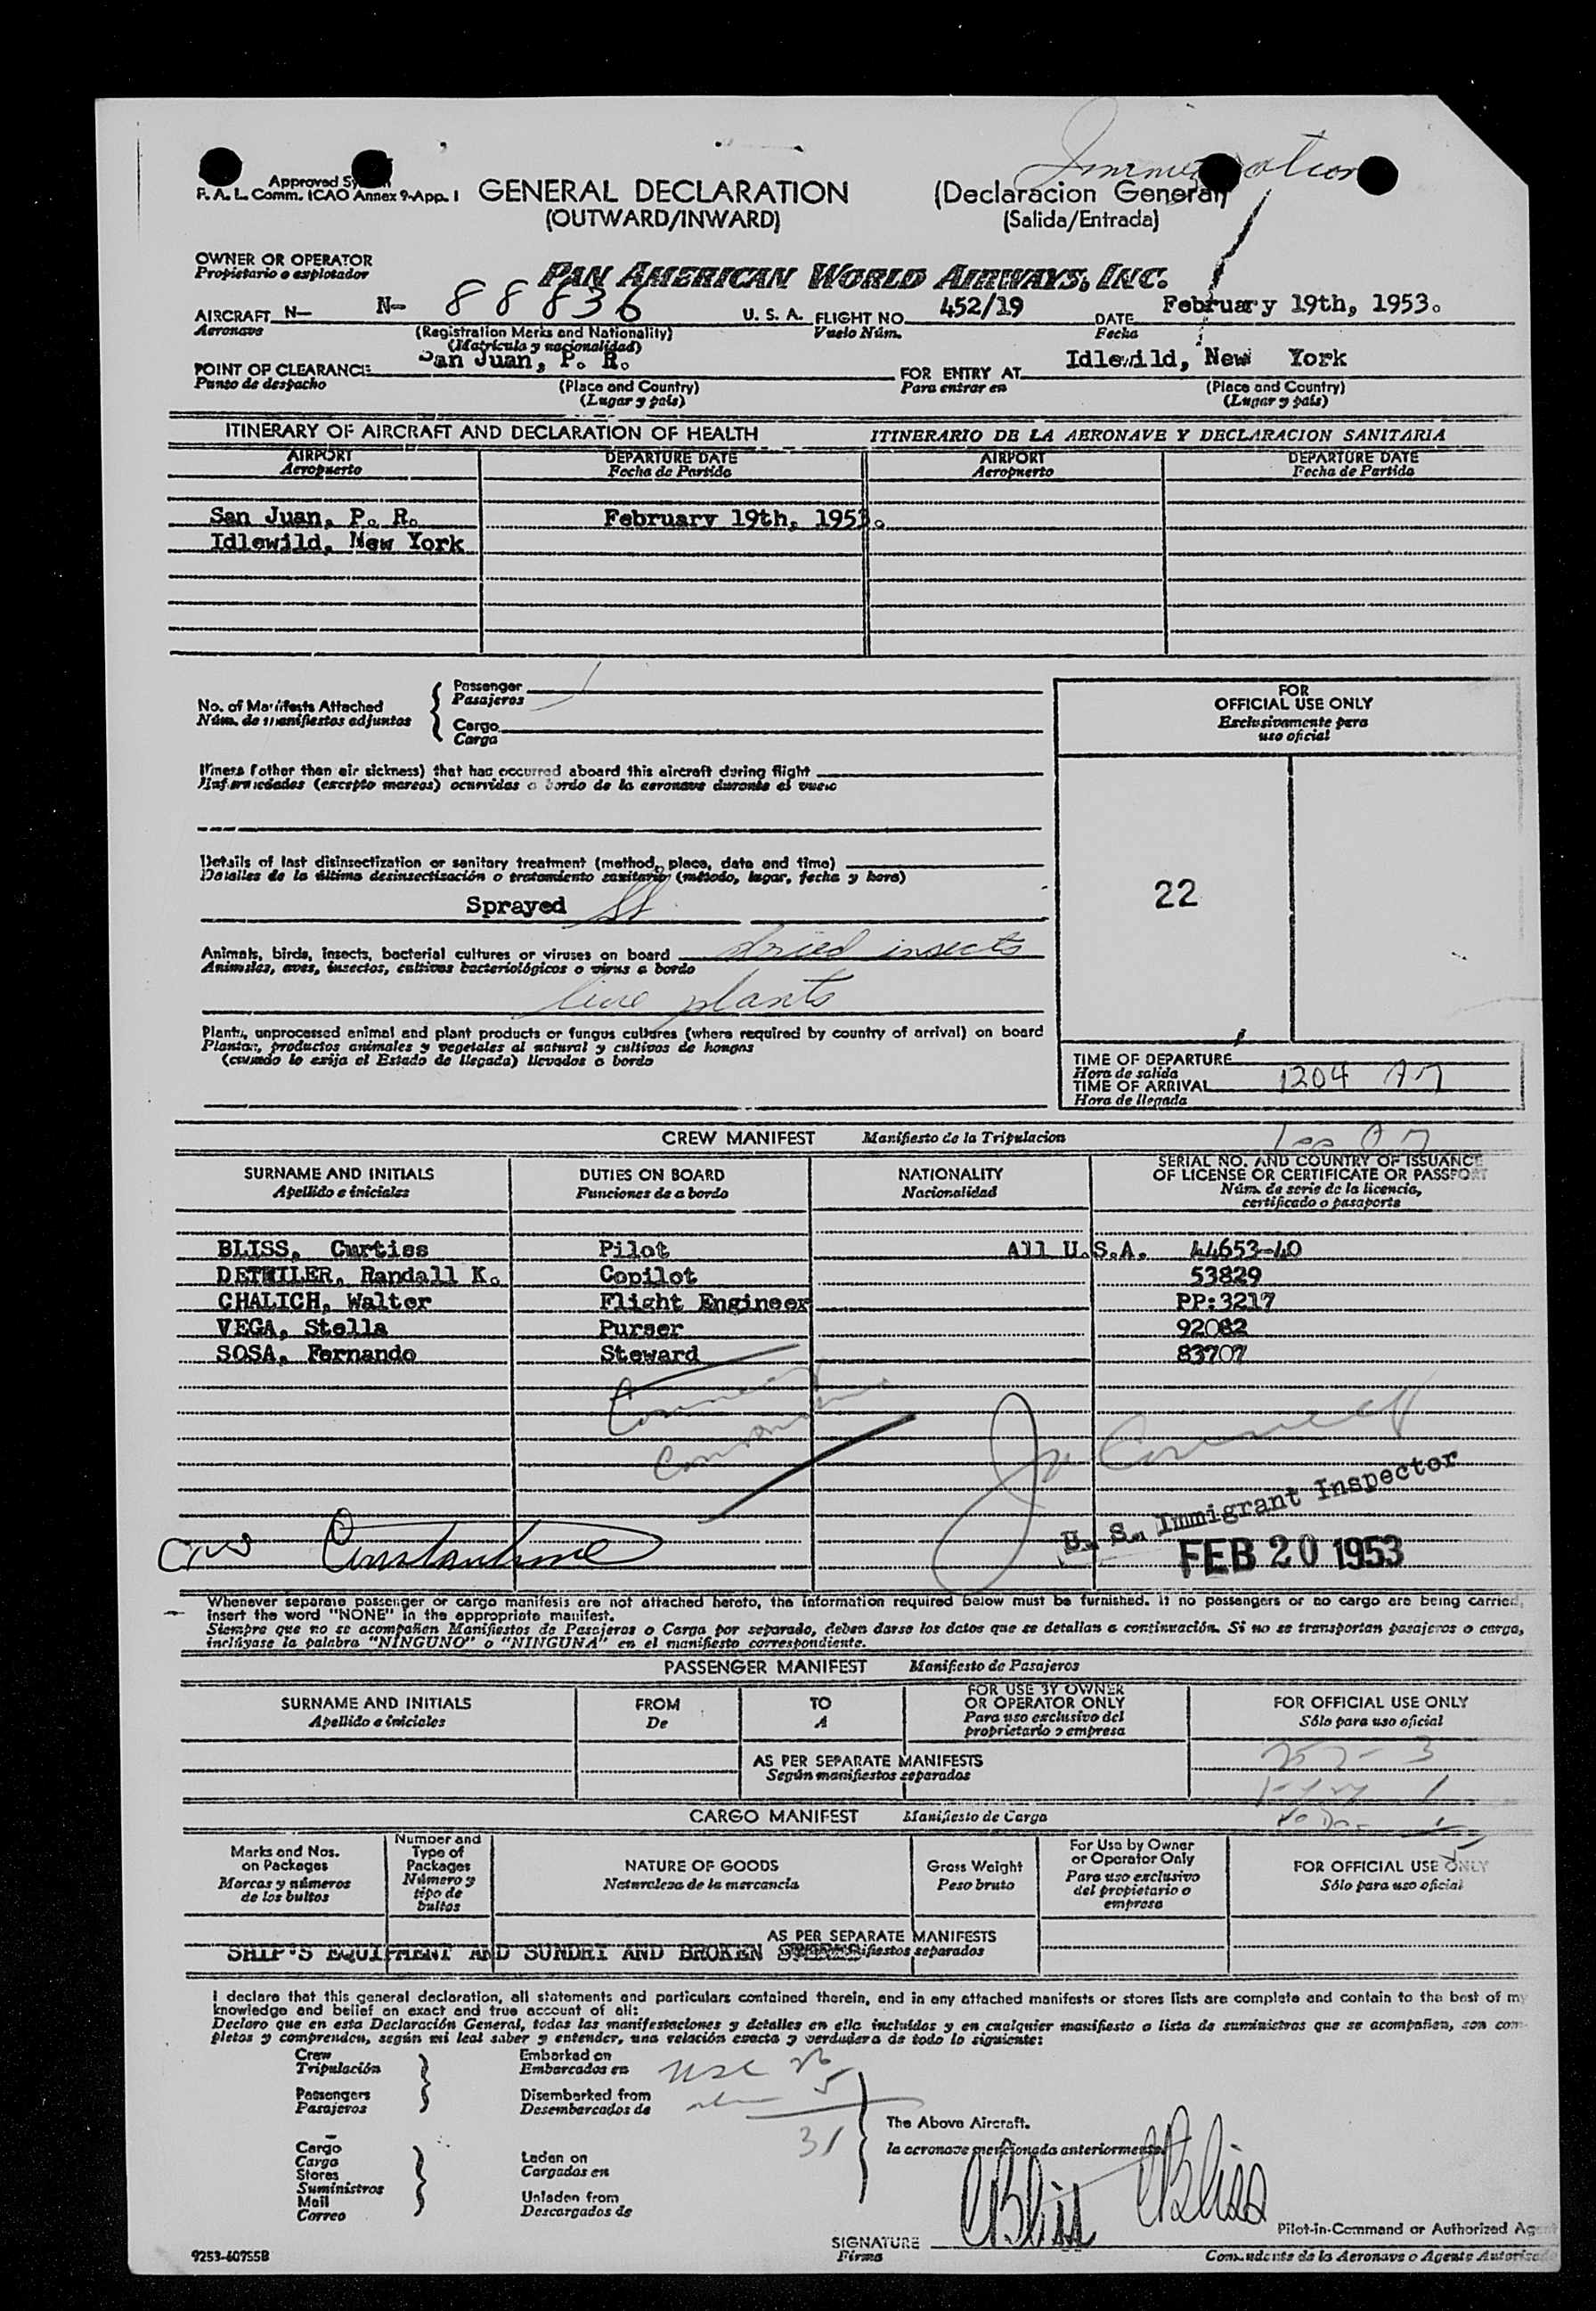 Immigration
Approved
F. A. L. Comm. ICAO Annex 9-App. 1
GENERAL DECLARATION (Declaracion General)
(OUTWARD/INWARD) (Salida/Entrada)
OWNER OR OPERATOR
Propietario o explotador
PAN AMERICAN WORLD AIRWAYS, INC.
AIRCRAFT N- N- 88836 U. S. A. FLIGHT NO. 452/19 DATE February 19th, 1953.
Aeronave (Registration Marks and Nationality) Vuelo Núm. Fecha
(Matrícula y nacionalidad)
POINT OF CLEARANCE San Juan, P. R. FOR ENTRY AT Idlewild, New York
Punto de despacho (Place and Country) Para entrar en (Place and Country)
(Lugar y país) (Lugar y país)
ITINERARY OF AIRCRAFT AND DECLARATION OF HEALTH ITINERARIO DE LA AERONAVE Y DECLARACION SANITARIA
AIRPORT DEPARTURE DATE AIRPORT DEPARTURE DATE
Aeropuerto Fecha de Partida Aeropuerto Fecha de Partida
San Juan, P. R. February 19th, 1953.
Idlewild, New York
No. of Manifests Attached
Núm. de manifiestos adjuntos
Passenger
Pasajeros
Cargo
Carga
FOR
OFFICIAL USE ONLY
Exclusivamente para
uso oficial
Illness (other than air sickness) that has occurred aboard this aircraft during flight
Enfermedades (excepto mareos) ocurridas a bordo de la aeronave durante el vuelo
Details of last disinsectization or sanitary treatment (method, place, date and time)
Detalles de la última desinsectización o tratamiento sanitario (método, lugar, fecha y hora)
Sprayed
22
Animals, birds, insects, bacterial cultures or viruses on board dried insects
Animales, aves, insectos, cultivos bacteriológicos o virus a bordo
live plants
Plants, unprocessed animal and plant products or fungus cultures (where required by country of arrival) on board
Plantas, productos animales y vegetales al natural y cultivos de hongos
(cuando lo exija el Estado de llegada) llevados a bordo
TIME OF DEPARTURE
Hora de salida
TIME OF ARRIVAL 1204 AM
Hora de llegada
CREW MANIFEST Manifiesto de la Tripulacion
SURNAME AND INITIALS DUTIES ON BOARD NATIONALITY SERIAL NO. AND COUNTRY OF ISSUANCE
OF LICENSE OR CERTIFICATE OR PASSPORT
Apellido e iniciales Funciones de a bordo Nacionalidad Núm. de serie de la licencia,
certificado o pasaporte
BLISS, Curtiss Pilot All U.S.A. 44653-40
DETWILER, Randall K. Copilot 53829
CHALICH, Walter Flight Engineer PP:3217
VEGA, Stella Purser 92082
SOSA, Fernando Steward 83707
U. S. Immigrant Inspector
FEB 20 1953
Constantine
Whenever separate passenger or cargo manifests are not attached hereto, the information required below must be furnished. If no passengers or no cargo are being carried,
insert the word "NONE" in the appropriate manifest.
Siempre que no se acompañen Manifiestos de Pasajeros o Carga por separado, deben darse los datos que se detallan a continuación. Si no se transportan pasajeros o carga,
inclúyase la palabra "NINGUNO" o "NINGUNA" en el manifiesto correspondiente.
PASSENGER MANIFEST Manifiesto de Pasajeros
SURNAME AND INITIALS FROM TO FOR USE BY OWNER
OR OPERATOR ONLY FOR OFFICIAL USE ONLY
Apellido e iniciales De A Para uso exclusivo del
propietario o empresa Sólo para uso oficial
AS PER SEPARATE MANIFESTS
Según manifiestos separados
CARGO MANIFEST Manifiesto de Carga
Marks and Nos.
on Packages
Marcas y números
de los bultos
Number and
Type of
Packages
Número y
tipo de
bultos
NATURE OF GOODS
Naturaleza de la mercancia
Gross Weight
Peso bruto
For Use by Owner
or Operator Only
Para uso exclusivo
del propietario o
empresa
FOR OFFICIAL USE ONLY
Sólo para uso oficial
AS PER SEPARATE MANIFESTS
SHIP'S EQUIPMENT AND SUNDRY AND BROKEN manifiestos separados
I declare that this general declaration, all statements and particulars contained therein, and in any attached manifests or stores lists are complete and contain to the best of my
knowledge and belief an exact and true account of all:
Declaro que en esta Declaración General, todas las manifestaciones y detalles en ella incluídos y en cualquier manifiesto o lista de suministros que se acompañen, son com-
pletos y comprenden, según mi leal saber y entender, una relación exacta y verdadera de todo lo siguiente:
Crew
Tripulación
Passengers
Pasajeros
Embarked on
Embarcados en
Disembarked from
Desembarcados de
31
The Above Aircraft.
la aeronave mencionada anteriormente.
Cargo
Carga
Stores
Suministros
Mail
Correo
Laden on
Cargados en
Unladen from
Descargados de
CBliss CBliss
SIGNATURE Pilot-in-Command or Authorized Agent
Firma Comandante de la Aeronave o Agente Autorizado
9253-60755B